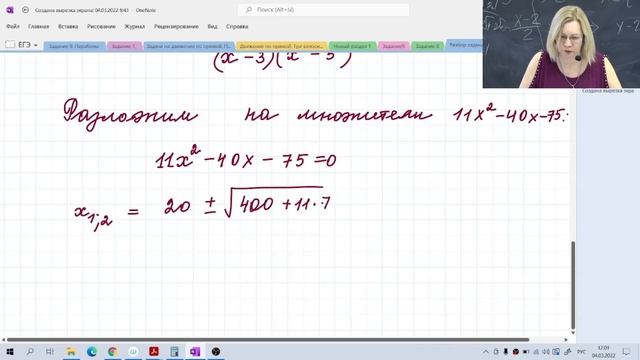 Создана вырезка экрана: 04.03.2022 9:43 - OneNote
Поиск (Alt+Ы)
Файл Главная Вставка Рисование Журнал Рецензирование Вид Справка
ЕГЭ Задание 9. Параболы Задание 1. Задачи на движение по прямой. П... Движение по прямой. Три велоси... Новый раздел 1 Задание9 Задание8 Разбор задан
(x-3)(x-5)
Разложим на множители 11x²-40x-75.
11x²-40x-75=0
x₁;₂ = 20 ± √400+11·7
Создана вырезка экра
04.03.2022
x-2
2
РУС
12:01
04.03.2022